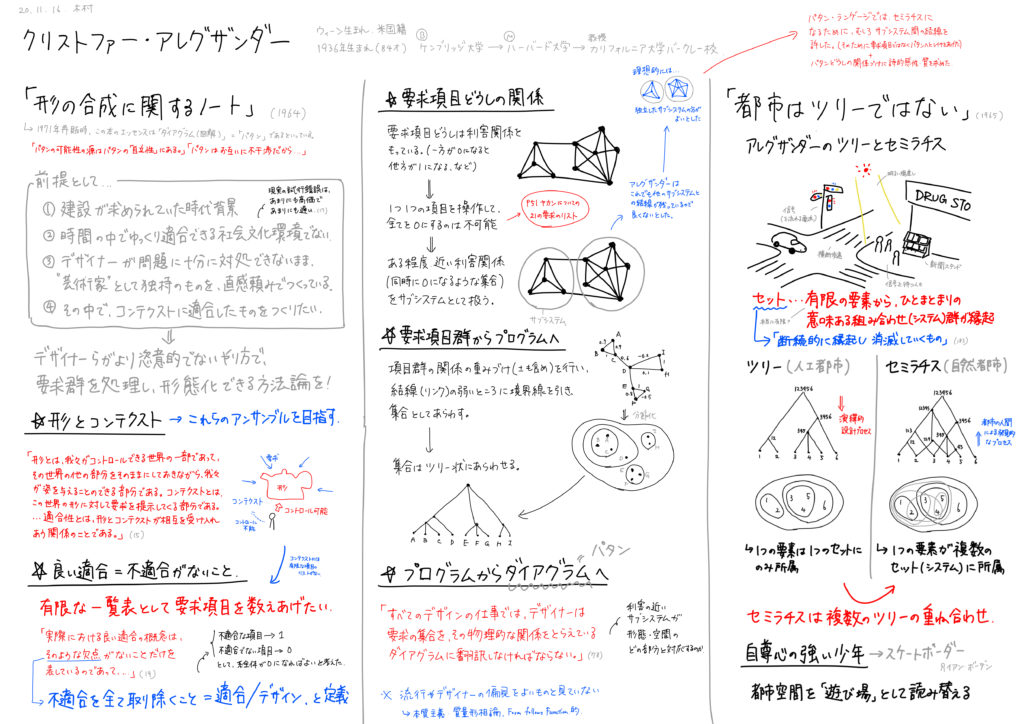 20.11.16 木村
クリストファー・アレグザンダー
ウィーン生まれ、米国籍
1936年生まれ(84才)
Ⓑ
ケンブリッジ大学
→
Ⓜ
ハーバード大学
→
教授
カリフォルニア大学バークレー校
パタン・ランゲージでは、セミラチスに
なるために、むしろサブシステム間の結線を
許した。
パタンどうしの関係づけに詩的感性・質を求めた
「形の合成に関するノート」(1964)
「パタンの可能性の源はパタンの「自立性」にある。」「パタンはお互いに不干渉だから...」
前提として...
現実の試行錯誤は、
あまりにも高価で
あまりにも遅い。
① 建設が求められていた時代背景
② 時間の中でゆっくり適合できる社会文化環境でない。
③ デザイナーが問題に十分に対処できないまま、
"芸術家"として独特のものを、直感頼みでつくっている。
④ その中で、コンテクストに適合したものをつくりたい。
デザイナーらがより恣意的でないやり方で、
要求群を処理し、形態化できる方法論を!
☆形とコンテクスト → これらのアンサンブルを目指す.
「形とは、我々がコントロールできる世界の一部であって、
その世界の他の部分をそのままにしておきながら、我々
が姿を与えることのできる部分である。コンテクストとは、
この世界の形に対して要求を提示してくる部分である。
...適合性とは、形とコンテクストが相互を受け入れ
あう関係のことである。」(15)
要求
形
コンテクスト
コントロール可能
コントロール
不能
☆ 良い適合=不適合がないこと.
有限な一覧表として要求項目を数えあげたい.
「実際における良い適合の概念は、
そのような欠点がないことだけを
表しているのであって、...」(19)
不適合な項目→1
不適合がない項目→0
として、系全体が0になればよいと考えた.
↳不適合を全て取り除くこと=適合/デザイン、と定義
☆要求項目どうしの関係
要求項目どうしは利害関係を
もっている。(一方が0になると
他方が1になる、など)
1つ1つの項目を操作して、
全てを0にするのは不可能
ある程度近い利害関係
(同時に0になるような集合)
をサブシステムとして扱う.
理想的には...
独立したサブシステムの方が
よいとした
P51ヤカンについての
21の要求のリスト
アレグザンダーは
これでも他のサブシステムと
の結線が残っているので
良くないとした。
サブシステム
☆要求項目群からプログラムへ
項目群の関係の重みづけ(±も含め)を行い、
結線(リンク)の弱いところに境界線を引き、
集合としてあらわす.
集合はツリー状にあらわせる.
A B C D E F G H I
☆プログラムからダイアグラムへ
パタン
「すべてのデザインの仕事では、デザイナーは
要求の集合を、その物理的な関係をとらえている
ダイアグラムに翻訳しなければならない。」(78)
利害の近い
サブシステムが
形態・空間の
どの部分と対応するのか
※ 流行やデザイナーの偏見をよいものと見ていない
↳本質主義・質量形相論、Form follows function 的.
「都市はツリーではない」(1965)
アレグザンダーのツリーとセミラチス
DRUG STO
信号
新聞スタンド
信号を待つ人々
セット...有限の要素から、ひとまとまりの
意味ある組み合わせ(システム)群が縁起
「断続的に縁起し消滅していくもの」
ツリー(人工都市)
123456
3456
345
12
1 2 3 4 5 6
演繹的
設計プロセス
セミラチス(自然都市)
123456
3456
1 2 3 4 5 6
都市の人間
による発見的
なプロセス
1 2 3 4 5 6
1 2 3 4 5 6
↳1つの要素は1つのセットに
のみ所属
↳1つの要素が複数の
セット(システム)に所属
セミラチスは複数のツリーの重ね合わせ.
自尊心の強い少年→スケートボーダー
イアン・ボーデン
都市空間を「遊び場」として読み替える